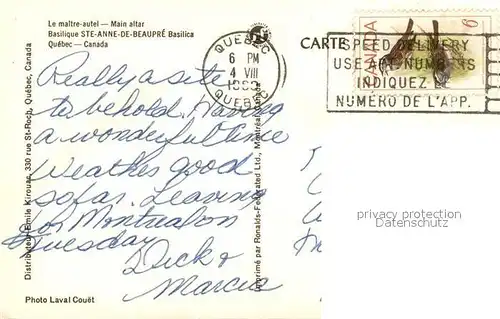 Le maître-autel — Main altar
Basilique STE-ANNE-DE-BEAUPRÉ Basilica
Québec — Canada
QUÉBEC
6 PM
4 VIII
QUÉBEC
CARTE
CANADA
6
SPEED DELIVERY
USE APT. NUMBERS
INDIQUEZ LE
NUMÉRO DE L'APP.
Really a site
to behold. Having
a wonderful time
Weather good
so far. Leaving
for Montreal on
Tuesday
Dick &
Marcus
Distributeur: Emile Kirouac, 330 rue St-Roch, Québec, Canada
Imprimé par Ronalds-Federated Ltd., Montréal, Canada
Photo Laval Couët
privacy protection
Datenschutz